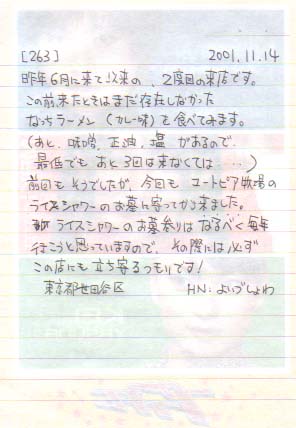 [263] 2001.11.14
昨年6月に来て以来の、2度目の来店です。
この前来たときはまだ存在しなかった
なっちラーメン(カレー味)を食べてみます。
(あと、味噌、正油、塩があるので、
最低でもあと3回は来なくては…)
前回もそうでしたが、今回もユートピア牧場の
ライスシャワーのお墓に寄ってから来ました。
ライスシャワーのお墓参りはなるべく毎年
行こうと思っていますので、その際には必ず
この店にも立ち寄るつもりです!
東京都世田谷区 HN:よいづしょわ